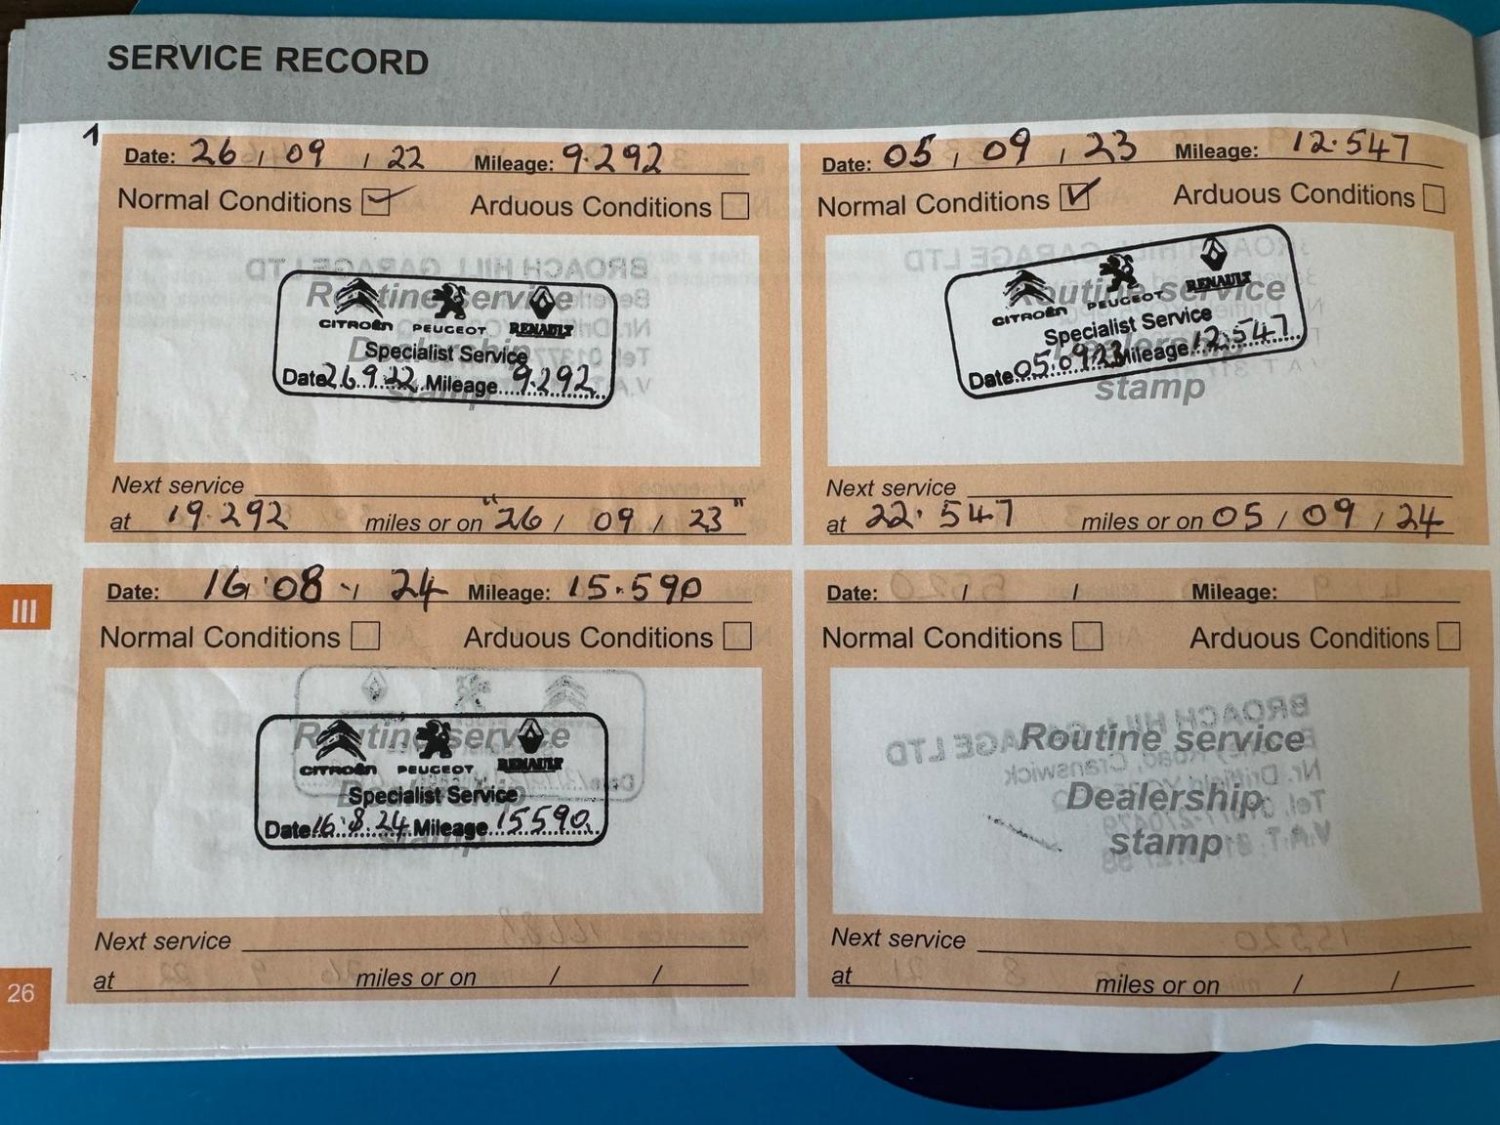 SERVICE RECORD
1
Date: 26 / 09 / 22 Mileage: 9.292
Normal Conditions Arduous Conditions
Routine service
Dealership
stamp
CITROËN PEUGEOT RENAULT
Specialist Service
Date 26.9.22 Mileage 9.292
Next service
at 19.292 miles or on "26 / 09 / 23"
Date: 05 / 09 / 23 Mileage: 12.547
Normal Conditions Arduous Conditions
Routine service
Dealership
stamp
CITROËN PEUGEOT RENAULT
Specialist Service
Date 05.09.23 Mileage 12.547
Next service
at 22.547 miles or on 05 / 09 / 24
III
Date: 16 / 08 / 24 Mileage: 15.590
Normal Conditions Arduous Conditions
Routine service
Dealership
stamp
CITROËN PEUGEOT RENAULT
Specialist Service
Date 16.8.24 Mileage 15590
Next service
at miles or on / /
Date: / / Mileage:
Normal Conditions Arduous Conditions
Routine service
Dealership
stamp
Next service
at miles or on / /
26